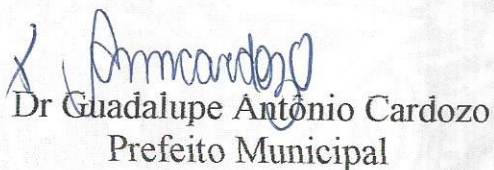 Dr Guadalupe Antônio Cardozo
Prefeito Municipal